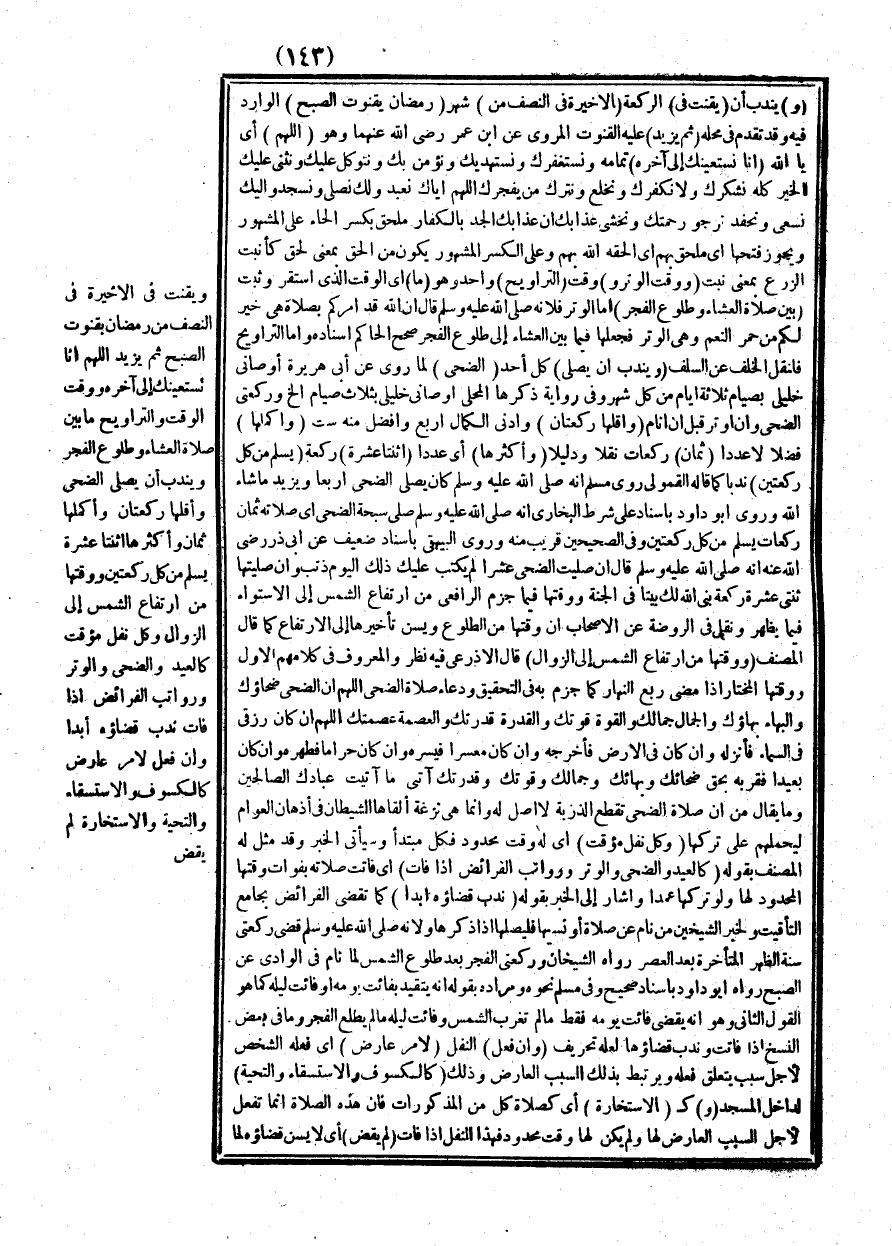 (١٤٣)
(و) يندب أن (يقنت فى) الركعة (الاخيرة فى النصف من) شهر (رمضان بقنوت الصبح) الوارد
فيه وقد تقدم فى محله (ثم يزيد) عليه القنوت المروى عن ابن عمر رضى الله عنهما وهو (اللهم) أى
يا الله (انا نستعينك إلى آخره) تمامه ونستغفرك ونستهديك ونؤمن بك ونتوكل عليك ونثنى عليك
الخير كله نشكرك ولا نكفرك ونخلع ونترك من يفجرك اللهم اياك نعبد ولك نصلى ونسجد واليك
نسعى ونحفد نرجو رحمتك ونخشى عذابك ان عذابك الجد بالكفار ملحق بكسر الحاء على المشهور
ويجوز فتحها اى ملحق بهم اى الحقه الله بهم وعلى الكسر المشهور يكون من الحق بمعنى لحق كأنبت
الزرع بمعنى نبت (ووقت الوتر و) وقت (التراويح) واحد وهو (ما) اى الوقت الذى استقر وثبت
(بين صلاة العشاء وطلوع الفجر) اما الوتر فلانه صلى الله عليه وسلم قال ان الله قد امركم بصلاة هى خير
لكم من حمر النعم وهى الوتر فجعلها فيما بين العشاء إلى طلوع الفجر صحح الحاكم اسناده واما التراويح
فلنقل الخلف عن السلف (ويندب ان يصلى) كل أحد (الضحى) لما روى عن أبى هريرة أوصانى
خليلى بصيام ثلاثة ايام من كل شهر وفى رواية ذكرها المحلى اوصانى خليلى بثلاث صيام الخ وركعتى
الضحى وان اوتر قبل ان انام (واقلها ركعتان) وادنى الكمال اربع وافضل منه ست (واكملها)
فضلا لا عددا (ثمان) ركعات نقلا ودليلا (وأكثرها) أى عددا (اثنتا عشرة) ركعة (يسلم من كل
ركعتين) ندبا كما قاله القمولى روى مسلم انه صلى الله عليه وسلم كان يصلى الضحى اربعا ويزيد ماشاء
الله وروى ابو داود باسناد على شرط البخارى انه صلى الله عليه وسلم صلى سبحة الضحى اى صلاته ثمان
ركعات يسلم من كل ركعتين وفى الصحيحين قريب منه وروى البيهقى باسناد ضعيف عن ابى ذر رضى
الله عنه انه صلى الله عليه وسلم قال ان صليت الضحى عشرا لم يكتب عليك ذلك اليوم ذنب وان صليتها
ثنتى عشرة ركعة بنى الله لك بيتا فى الجنة ووقتها فيما جزم الرافعى من ارتفاع الشمس إلى الاستواء
فيما يظهر ونقل فى الروضة عن الاصحاب ان وقتها من الطلوع ويسن تأخيرها إلى الارتفاع كما قال
المصنف (ووقتها من ارتفاع الشمس إلى الزوال) قال الاذرعى فيه نظر والمعروف فى كلامهم الاول
ووقتها المختار اذا مضى ربع النهار كما جزم به فى التحقيق ودعاء صلاة الضحى اللهم ان الضحى ضحاؤك
والبهاء بهاؤك والجمال جمالك والقوة قوتك والقدرة قدرتك والعصمة عصمتك اللهم ان كان رزقى
فى السماء فأنزله وان كان فى الارض فأخرجه وان كان معسرا فيسره وان كان حراما فطهره وان كان
بعيدا فقربه بحق ضحائك وبهائك وجمالك وقوتك وقدرتك آتنى ما آتيت عبادك الصالحين
وما يقال من ان صلاة الضحى تقطع الذرية لا اصل له وانما هى نزغة ألقاها الشيطان فى أذهان العوام
ليحملهم على تركها (وكل نفل مؤقت) اى له وقت محدود فكل مبتدأ وسيأتى الخبر وقد مثل له
المصنف بقوله (كالعيد والضحى والوتر ورواتب الفرائض اذا فات) اى فاتت صلاته بفوات وقتها
المحدود لها ولو تركها عمدا واشار إلى الخبر بقوله (ندب قضاؤه ابدا) كما تقضى الفرائض بجامع
التأقيت ولخبر الشيخين من نام عن صلاة أو نسيها فليصلها اذا ذكرها ولانه صلى الله عليه وسلم قضى ركعتى
سنة الظهر المتأخرة بعد العصر رواه الشيخان وركعتى الفجر بعد طلوع الشمس لما نام فى الوادى عن
الصبح رواه ابو داود باسناد صحيح وفى مسلم نحوه ومراده بقوله انه يتقيد بفائت يومه او فائت ليله كما هو
القول الثانى وهو انه يقضى فائت يومه فقط مالم تغرب الشمس وفائت ليله مالم يطلع الفجر وما فى بعض
النسخ اذا فاتت وندب قضاؤها لعله تحريف (وان فعل) النفل (لامر عارض) اى فعله الشخص
لاجل سبب يتعلق فعله ويرتبط بذلك السبب العارض وذلك (كالكسوف والاستسقاء والتحية)
لداخل المسجد (و) كـ (الاستخارة) أى كصلاة كل من المذكورات فان هذه الصلاة انما تفعل
لاجل السبب العارض لها ولم يكن لها وقت محدود فهذا النفل اذا فات (لم يقض) أى لا يسن قضاؤه لما
ويقنت فى الاخيرة فى
النصف من رمضان بقنوت
الصبح ثم يزيد اللهم انا
نستعينك إلى آخره ووقت
الوتر والتراويح ما بين
صلاة العشاء وطلوع الفجر
ويندب أن يصلى الضحى
وأقلها ركعتان وأكملها
ثمان وأكثرها اثنتا عشرة
يسلم من كل ركعتين ووقتها
من ارتفاع الشمس إلى
الزوال وكل نفل مؤقت
كالعيد والضحى والوتر
ورواتب الفرائض اذا
فات ندب قضاؤه أبدا
وان فعل لامر عارض
كالكسوف والاستسقاء
والتحية والاستخارة لم
يقض